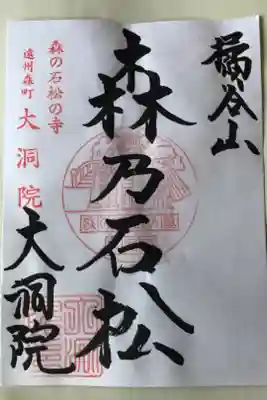 橘谷山
森乃石松
森の石松の寺
遠州森町 大洞院
大洞院